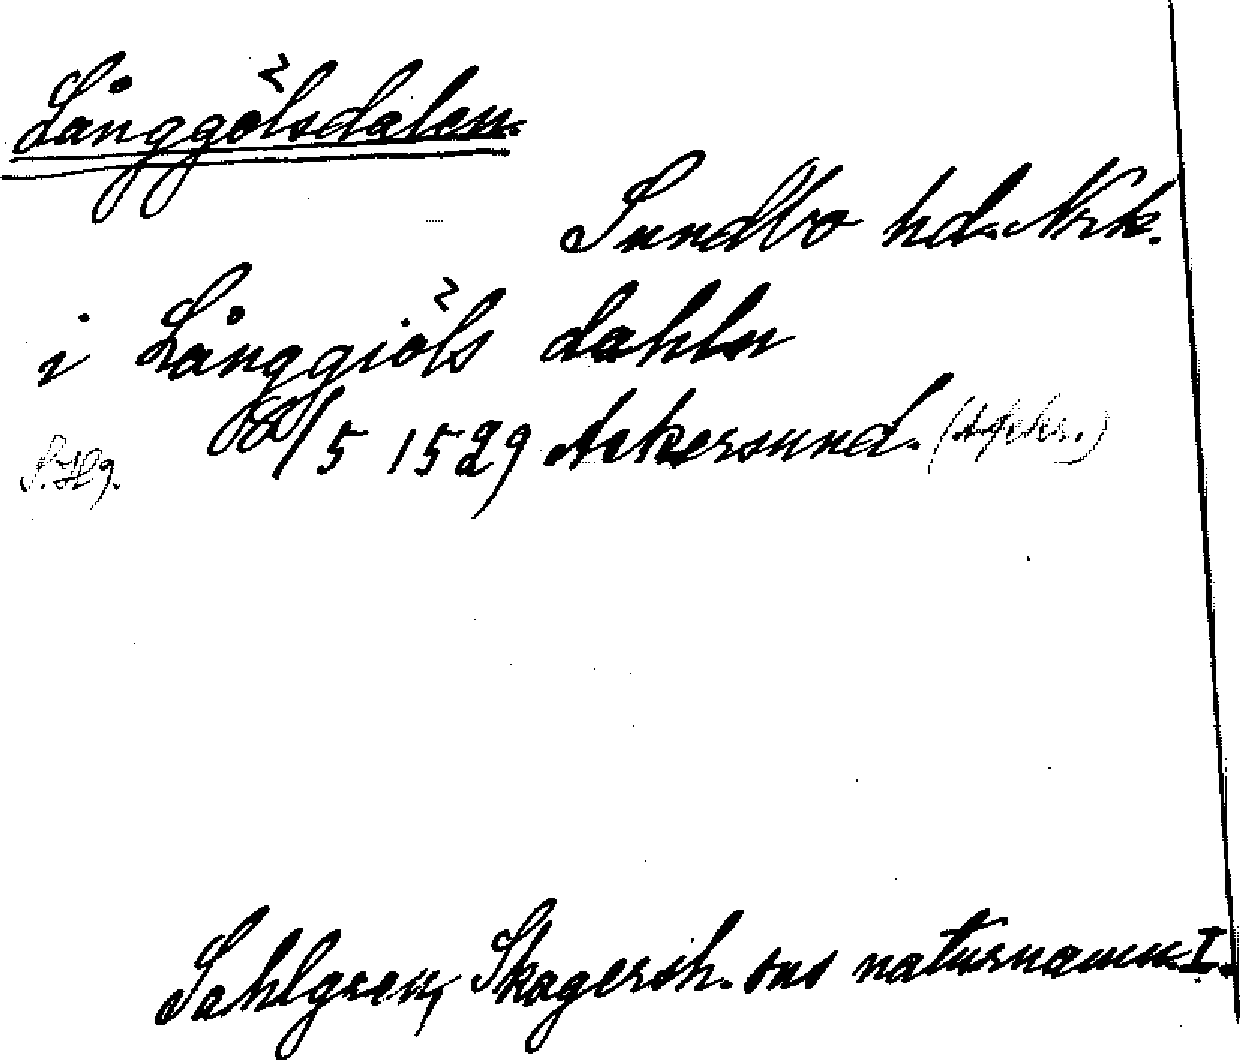 Långgölsdalen
Sundbo hd. Nrk.
i Långgiöls dahln
/5 1529 Ackersund. (Afskr.)
S. Hg.
Sahlgren, Skagersh. sns naturnamn I.